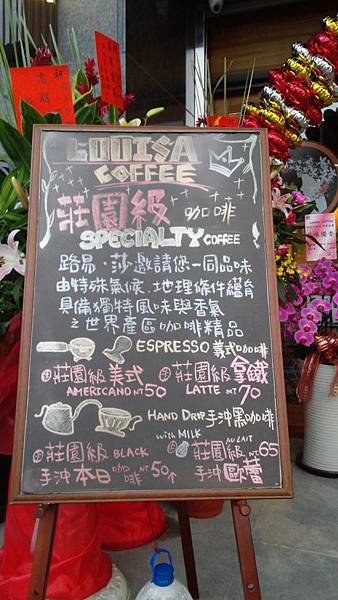 LOUISA
COFFEE
莊園級 咖啡
SPECIALTY COFFEE
路易．莎邀請您一同品味
由特殊氣候．地理條件繼育
具備獨特風味與香氣
之世界產區咖啡精品
ESPRESSO 義式咖啡
莊園級美式 莊園級拿鐵
AMERICANO NT50 LATTE NT 70
HAND DRIP 手沖黑咖啡
with MILK
AU LAIT
莊園級 BLACK 莊園級 NT.65
手沖本日咖啡 NT.50 手沖歐蕾